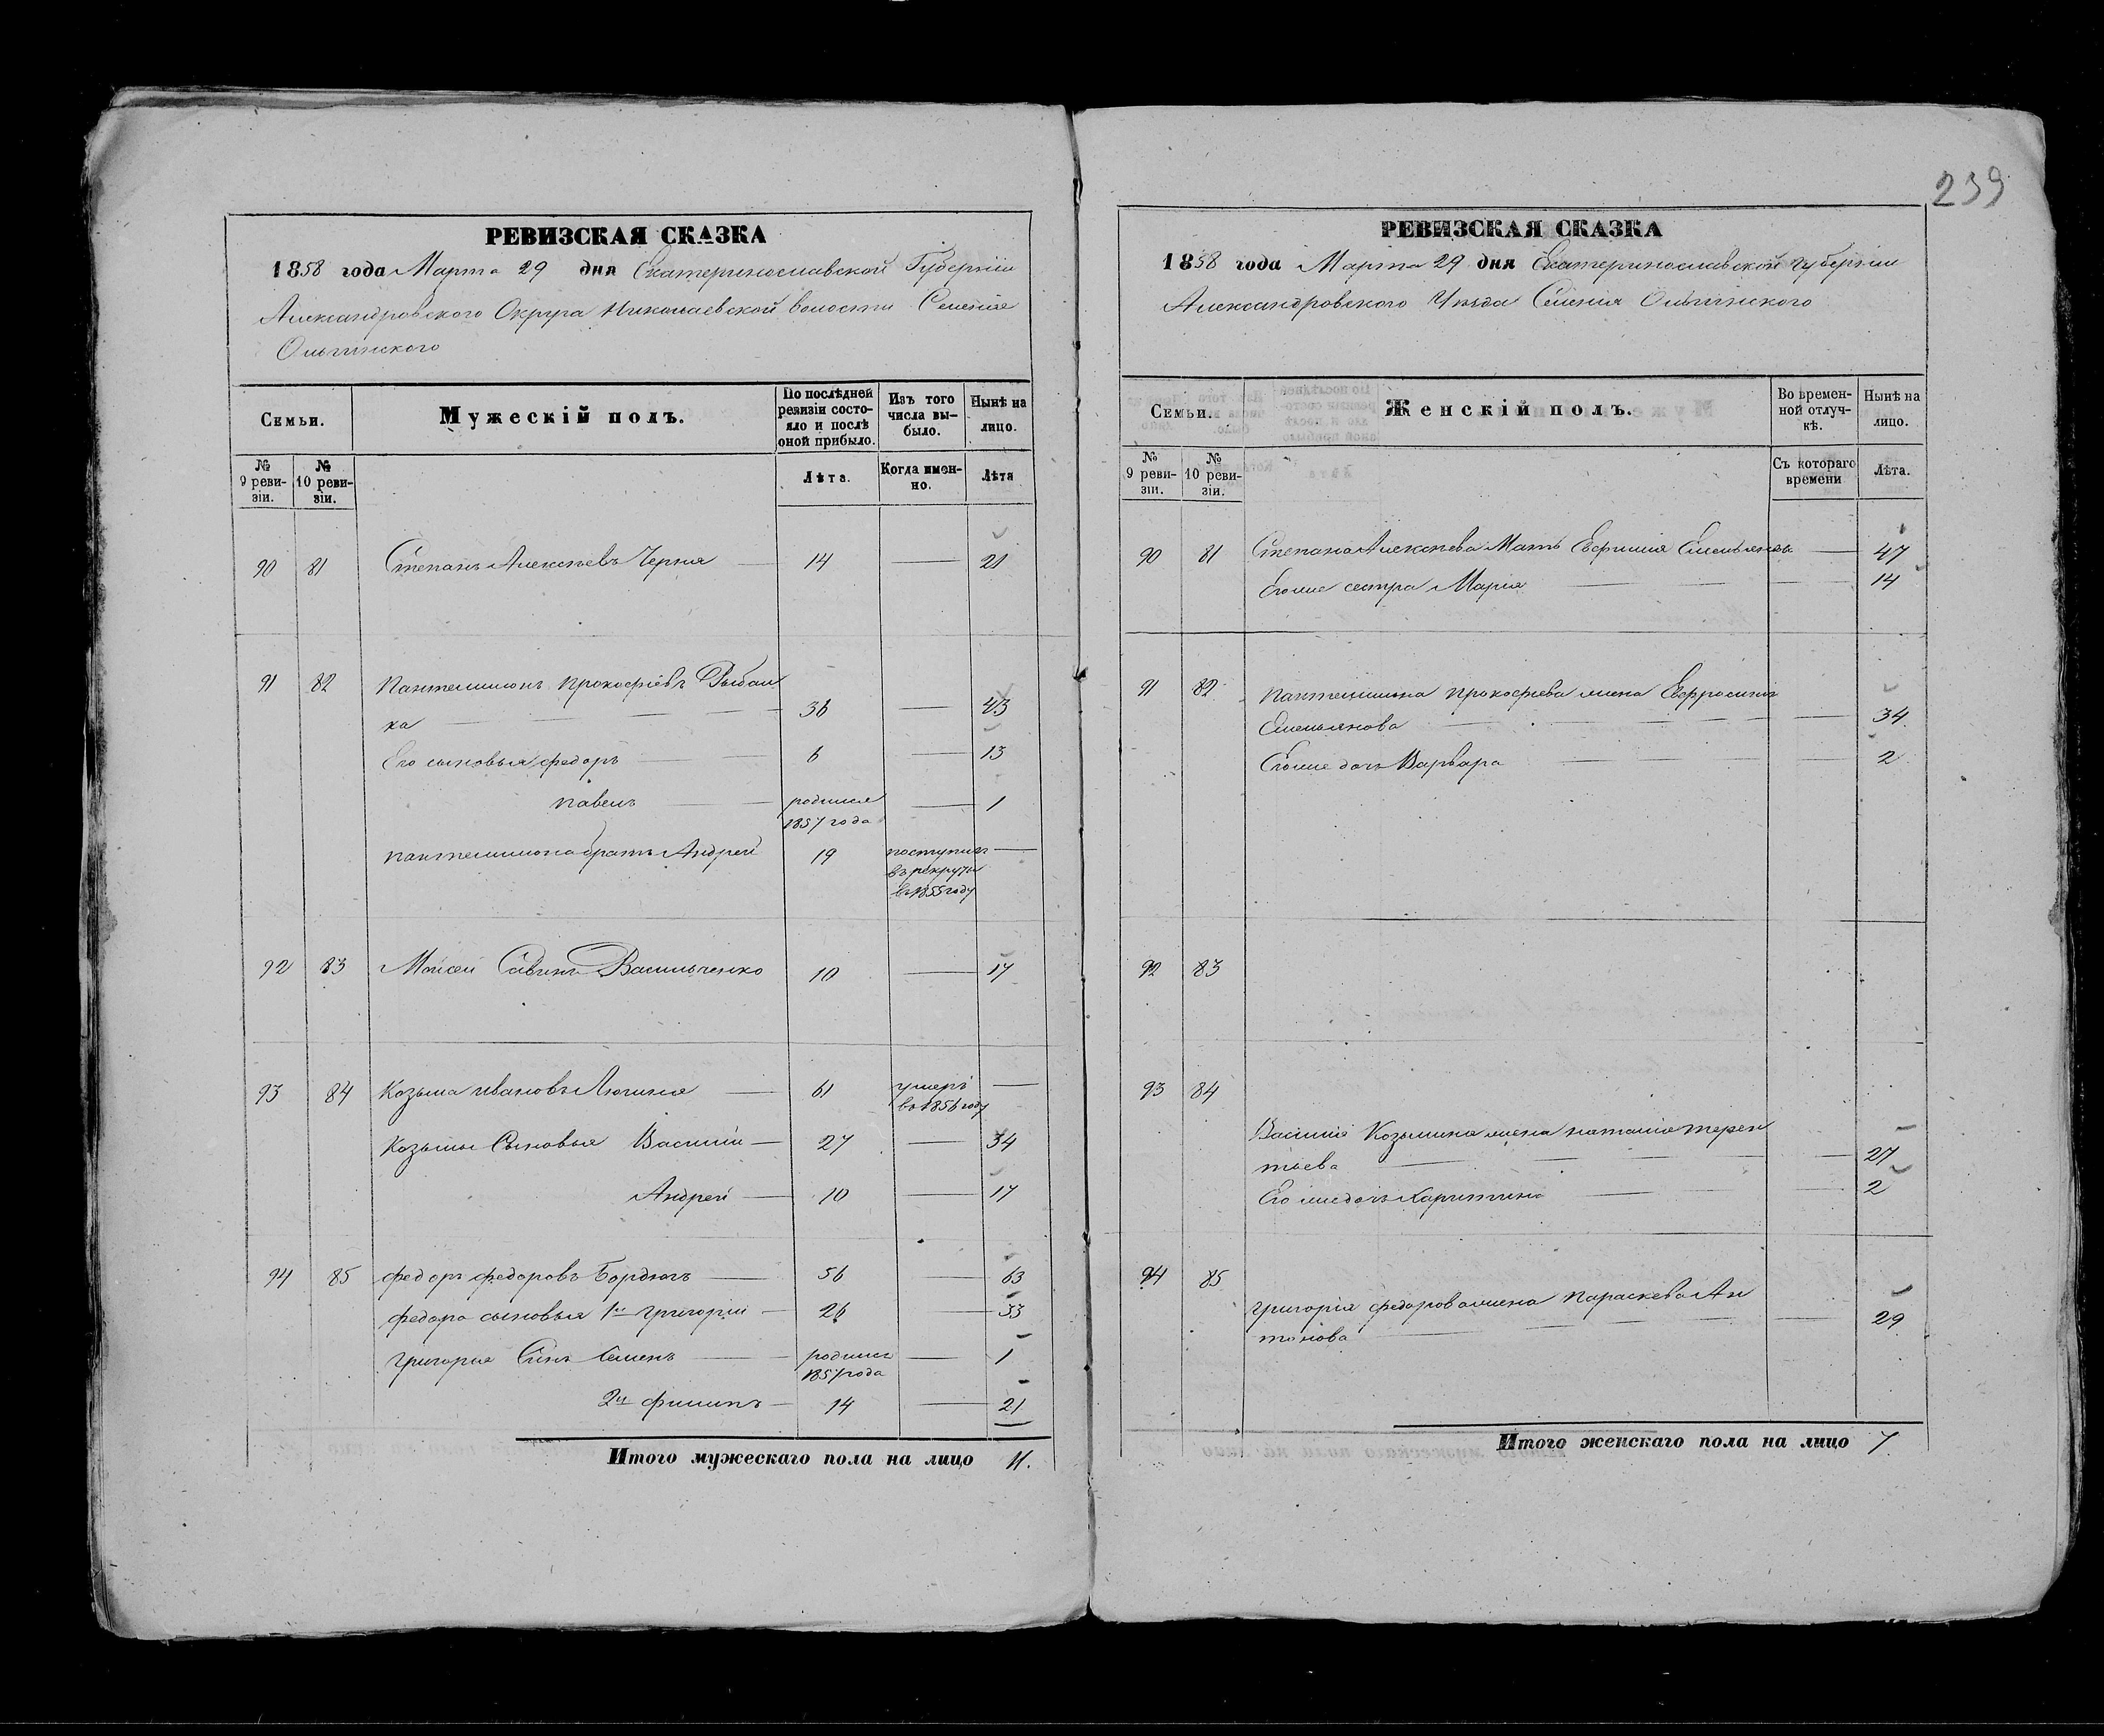 239
РЕВИЗСКАЯ СКАЗКА
1858 года Марта 29 дня Екатеринославской Губерніи
Александровского Округа Николаевской волости Селенія
Ольгинского
Семьи.
Мужескій полъ.
По послѣдней ревизіи состояло и послѣ оной прибыло.
Изъ того числа выбыло.
Нынѣ на лицо.
№ 9 ревизіи.
№ 10 ревизіи.
Лѣта.
Когда именно.
Лѣта
90 81 Степанъ Алексѣевъ Черня 14 — 21
91 82 Пантелимонъ Прокофіевъ Рыбал
ка — 36 — 43
Его сыновья федоръ — 6 — 13
павелъ — родился — 1
1857 года
пантелимона братъ Андрей 19 поступил —
въ рекруты
въ 1855 году
92 83 Мойсей Савинъ Васильченко 10 — 17
93 84 Козьма ивановъ — 61 умеръ —
въ 1856 году
Козьмы Сыновья Василіи — 27 — 34
Андрей — 10 — 17
94 85 федоръ федоровъ Бордюгъ — 56 — 63
федора сыновья 1й григоріи — 26 — 33
григорія Сынъ Семенъ — родился — 1
1857 года
2й филипъ — 14 — 21
Итого мужескаго пола на лицо 11.
РЕВИЗСКАЯ СКАЗКА
1858 года Марта 29 дня Екатеринославской губерніи
Александровского Уѣзда Селенія Ольгинского
Семьи.
Женскій полъ.
Во временной отлучкѣ.
Нынѣ на лицо.
№ 9 ревизіи.
№ 10 ревизіи.
Съ котораго времени
Лѣта.
90 81 Степана Алексѣева Мать Емельянова — 47
Егоже сестра Марія — 14
91 82 пантелимона прокофіева жена Евфросинія
Емельянова — 34
Егоже дочь Варвара — 2
92 83
93 84
Василія Козьмина жена наталія терен
тьева — 27
Егоже дочь Харитина — 2
94 85
григорія федорова жена параскева Ан
тонова — 29
Итого женскаго пола на лицо 7.